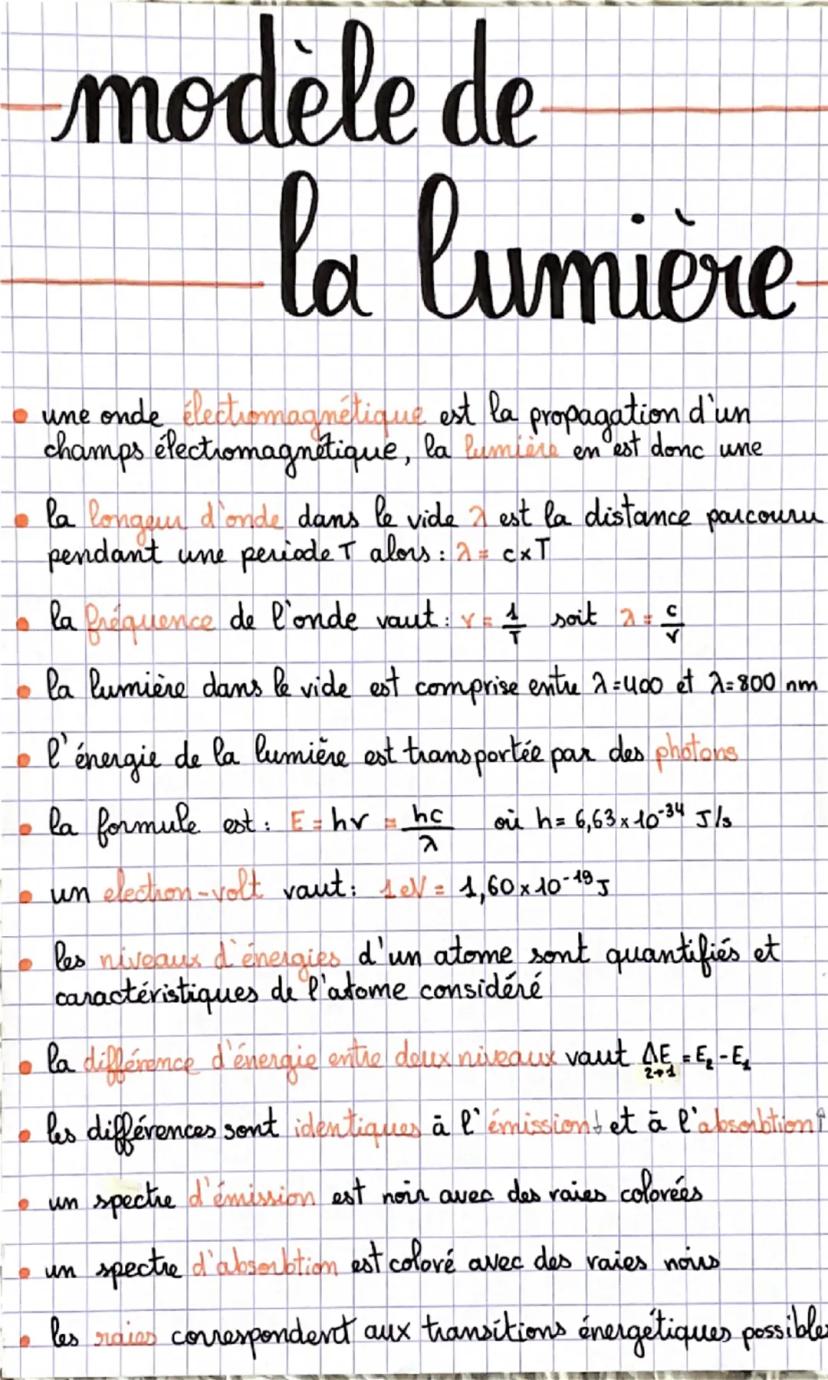 modèle de
la lumière
• une onde électromagnétique est la propagation d'un
champs électromagnétique, la lumière en est donc une
• la longeur d'onde dans le vide λ est la distance parcouru
pendant une periode T alors : λ = c×T
• la fréquence de l'onde vaut : ν = 1/T soit λ = c/ν
• la lumière dans le vide est comprise entre λ=400 et λ=800 nm
• l'énergie de la lumière est transportée par des photons
• la formule est : E = hν = hc/λ où h= 6,63×10⁻³⁴ J/s
• un electron-volt vaut : 1eV = 1,60×10⁻¹⁹J
• les niveaux d'énergies d'un atome sont quantifiés et
caractéristiques de l'atome considéré
• la différence d'énergie entre deux niveaux vaut ΔE 2→1 = E₂ - E₁
• les différences sont identiques à l'émission↓ et à l'absorbtion↑
• un spectre d'émission est noir avec des raies colorées
• un spectre d'absorbtion est coloré avec des raies noirs
• les raies correspondent aux transitions énergétiques possibles